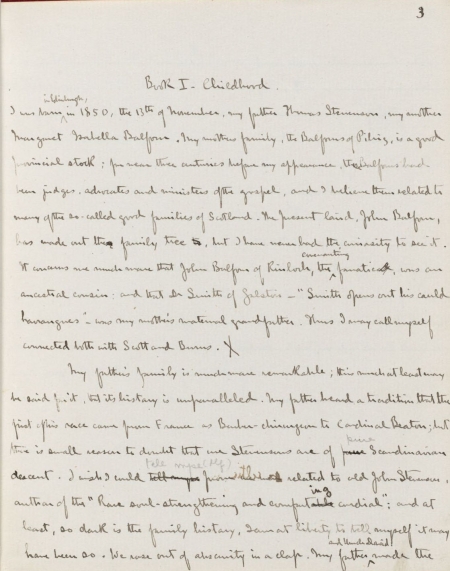 3
Book I - Childhood.
in Edinburgh,
I was born in 1850, the 13th of November, my father Thomas Stevenson, my mother
Margaret Isabella Balfour. My mother's family, the Balfours of Pilrig, is a good
provincial stock; for near three centuries before my appearance, the Balfours had
been judges, advocates and ministers of the gospel, and I believe them related to
many of the so-called good families of Scotland. The present laird, John Balfour,
has made out the family tree, but I have never had the curiosity to see it.
covenanting
It concerns me much more that John Balfour of Kinloch, the fanatic, was an
ancestral cousin; and that Dr Smith of Galston - "Smith opens out his cauld
harrangues" - was my mother's maternal grandfather. Thus I may call myself
connected both with Scott and Burns. X
My father's family is much more remarkable; this much at least may
be said for it, that its history is unparalleled. My father heard a tradition that the
first of his race came from France as Barber-chirurgeon to Cardinal Beaton; but
there is small reason to doubt that we Stevensons are of pure Scandinavian
(tell myself)
descent. I wish I could related to old John Stevenson,
ing
author of the "Rare soul-strengthening and comfort cordial"; and at
least, so dark is the family history, I am at liberty to tell myself it may
and Uncle David
have been so. We rose out of obscurity in a clap. My father made the